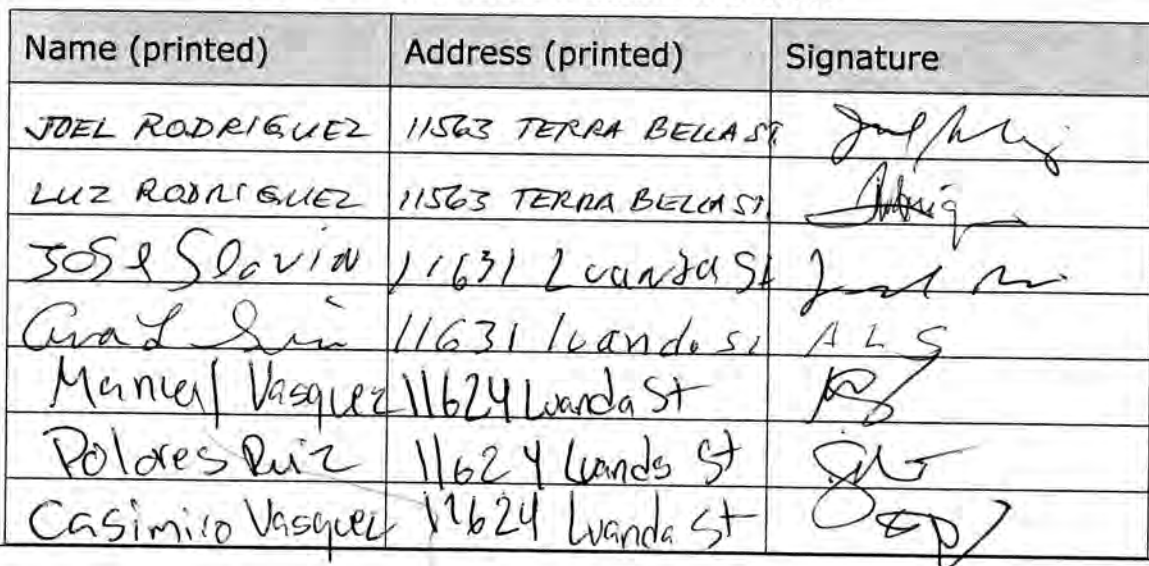 Name (printed) Address (printed) Signature
JOEL RODRIGUEZ 11563 TERRA BELLA ST
LUZ RODRIGUEZ 11563 TERRA BELLA ST
Jose 11631 Luanda St
Ana L 11631 luanda st A L S
Manuel Vasquez 11624 Luanda St
Dolores Ruiz 11624 Luanda St
Casimiro Vasquez 11624 Luanda St